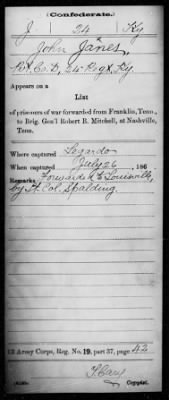 (Confederate.)
J 24 Ky
John Janes,
Pvt. Co. D, 24 Regt. Ky.
Appears on a
List
of prisoners of war forwarded from Franklin, Tenn.,
to Brig. Gen'l Robert B. Mitchell, at Nashville,
Tenn.
Where captured Legardo
When captured July 26, 186
Remarks Forwarded to Louisville,
by Lt. Col. Spalding.
Army Corps, Reg. No. 19, part 37, page 42
Copyist.